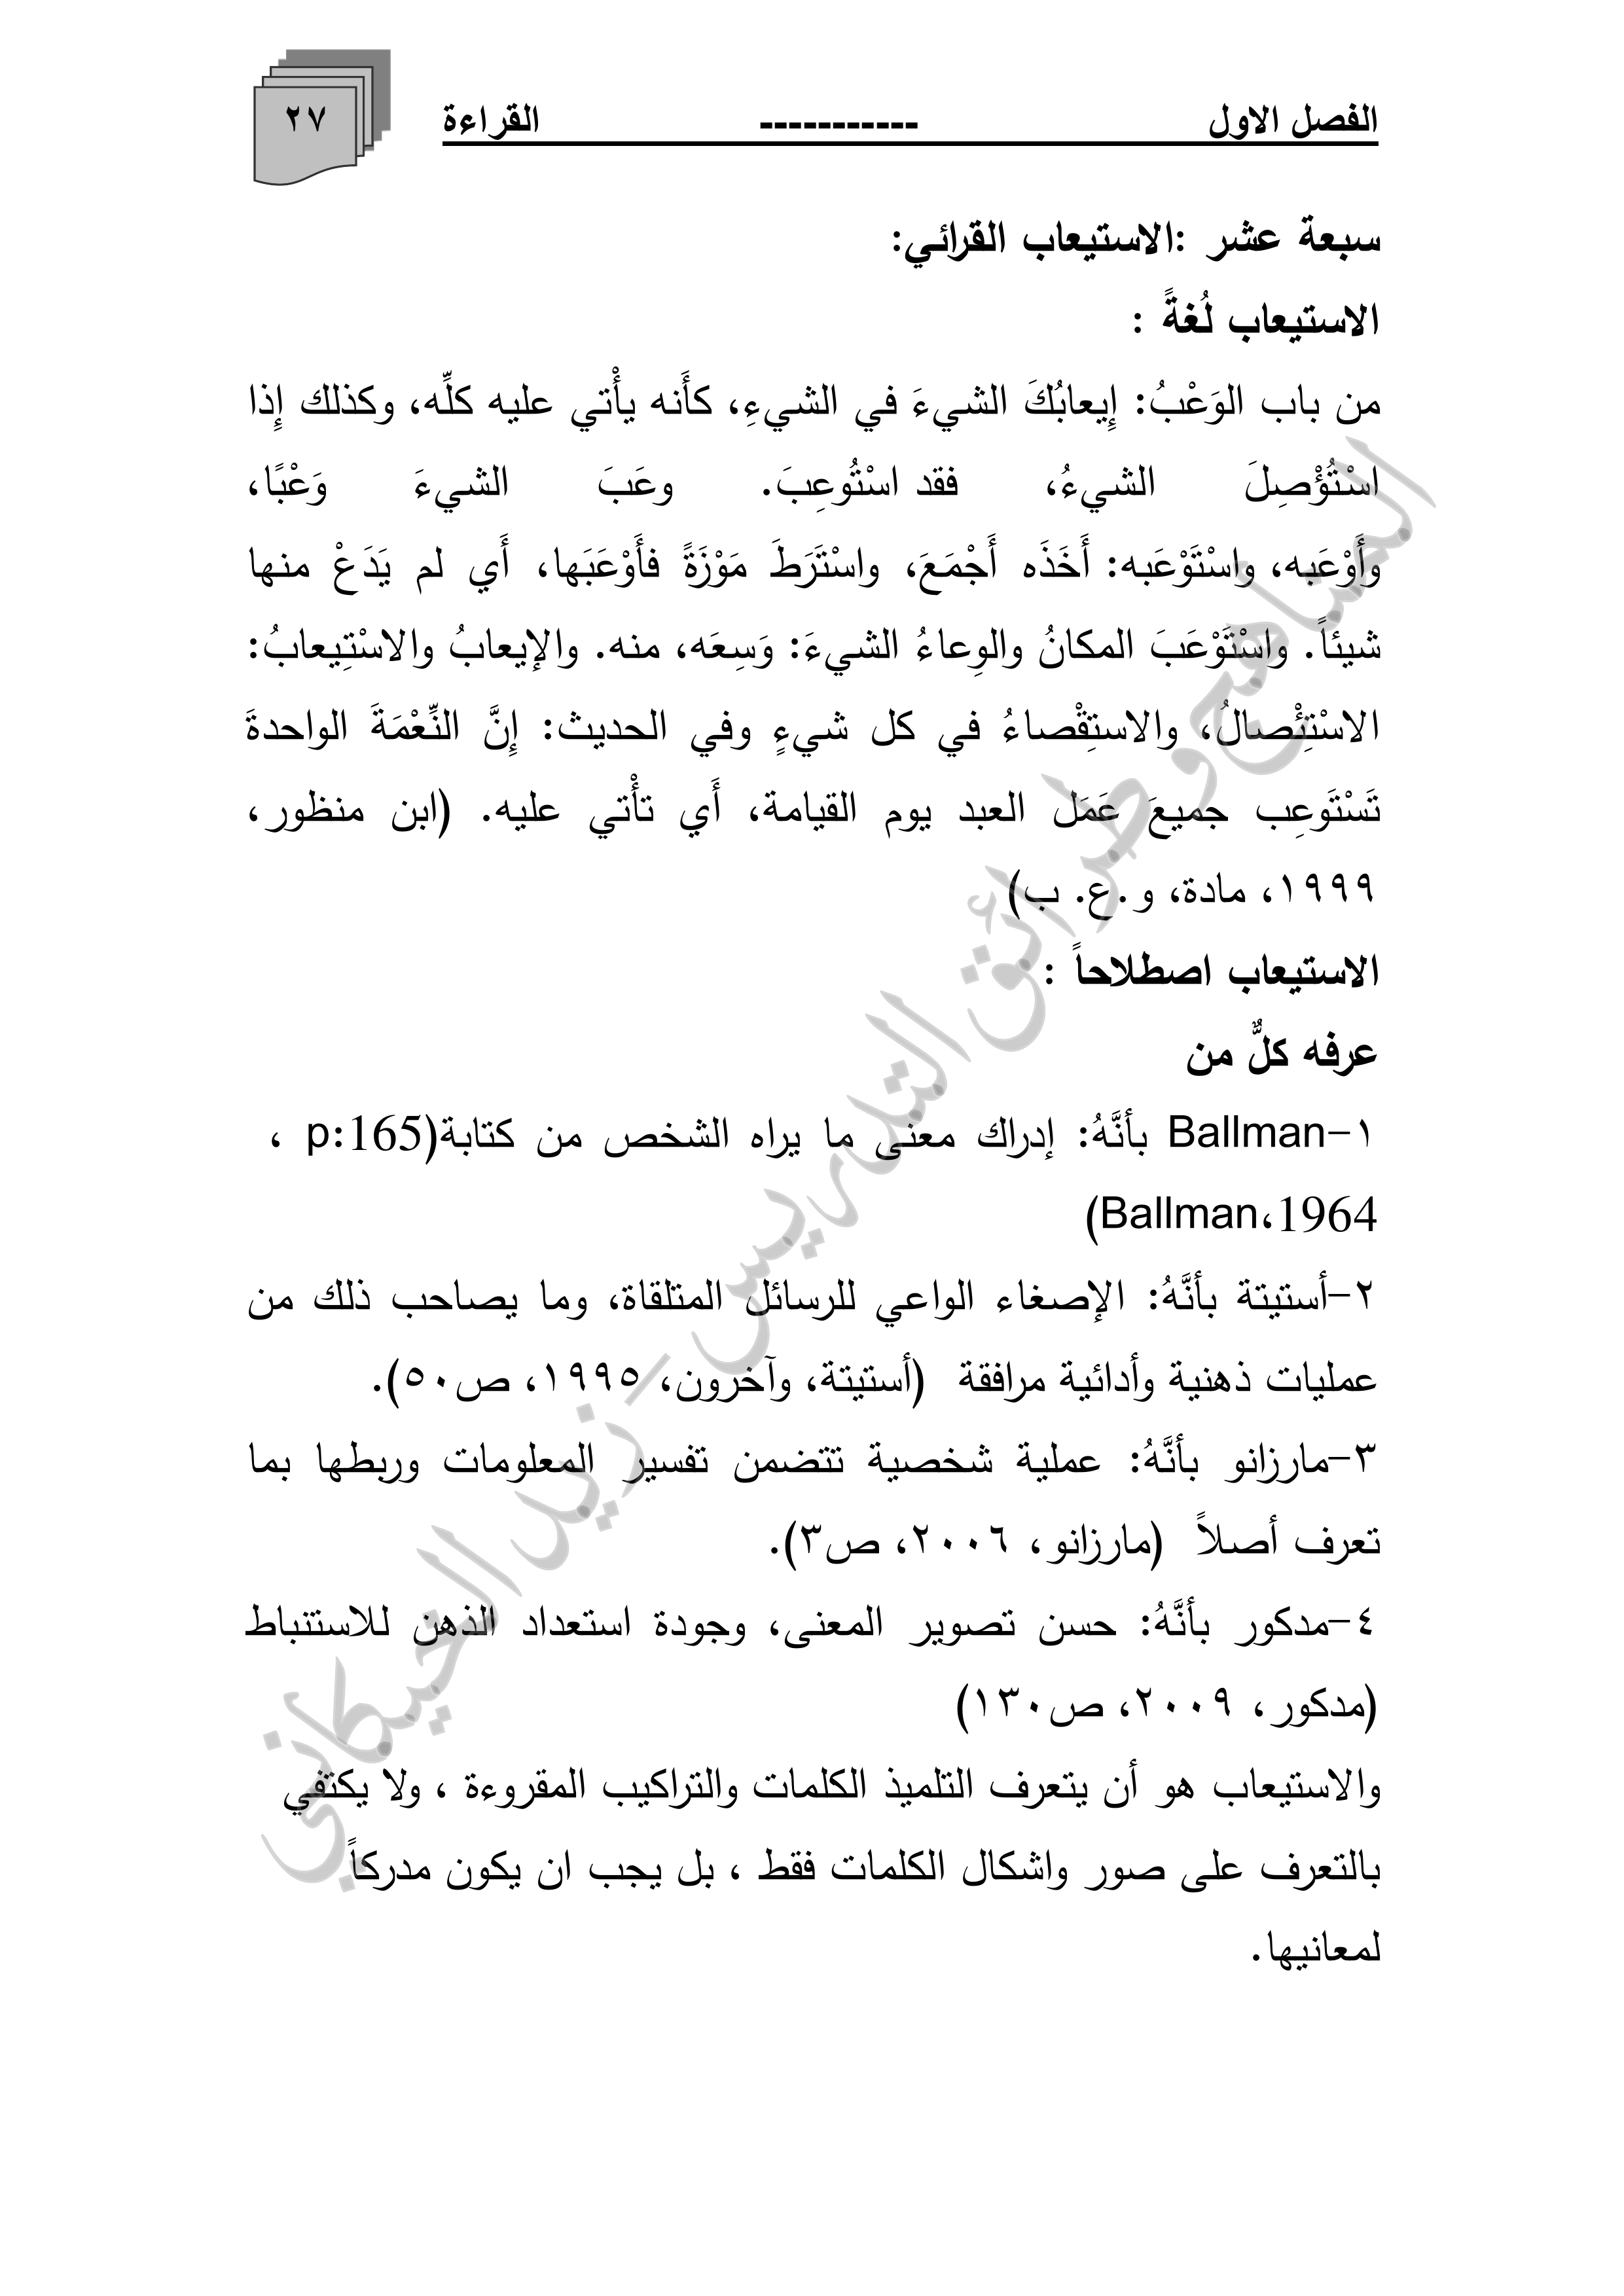 الفصل الاول ----------- القراءة ٢٧
سبعة عشر :الاستيعاب القرائي:
الاستيعاب لُغةً :
من باب الوَعْبُ: إِيعابُكَ الشيءَ في الشيءِ، كأَنه يأْتي عليه كلِّه، وكذلك إِذا
اسْتُؤْصِلَ الشيءُ، فقد اسْتُوعِبَ. وعَبَ الشيءَ وَعْبًا،
وأَوْعَبه، واسْتَوْعَبه: أَخَذَه أَجْمَعَ، واسْتَرَطَ مَوْزَةً فأَوْعَبَها، أَي لم يَدَعْ منها
شيئاً. واسْتَوْعَبَ المكانُ والوِعاءُ الشيءَ: وَسِعَه، منه. والإيعابُ والاسْتِيعابُ:
الاسْتِئْصالُ، والاستِقْصاءُ في كل شيءٍ وفي الحديث: إِنَّ النِّعْمَةَ الواحدةَ
تَسْتَوعِب جميعَ عَمَل العبد يوم القيامة، أَي تأْتي عليه. (ابن منظور،
١٩٩٩، مادة، و.ع. ب)
الاستيعاب اصطلاحاً :
عرفه كلٌّ من
١-Ballman بأنَّهُ: إدراك معنى ما يراه الشخص من كتابة(p:165 ،
Ballman،1964)
٢-أستيتة بأنَّهُ: الإصغاء الواعي للرسائل المتلقاة، وما يصاحب ذلك من
عمليات ذهنية وأدائية مرافقة (أستيتة، وآخرون، ١٩٩٥، ص٥٠).
٣-مارزانو بأنَّهُ: عملية شخصية تتضمن تفسير المعلومات وربطها بما
تعرف أصلاً (مارزانو، ٢٠٠٦، ص٣).
٤-مدكور بأنَّهُ: حسن تصوير المعنى، وجودة استعداد الذهن للاستنباط
(مدكور، ٢٠٠٩، ص١٣٠)
والاستيعاب هو أن يتعرف التلميذ الكلمات والتراكيب المقروءة ، ولا يكتفي
بالتعرف على صور واشكال الكلمات فقط ، بل يجب ان يكون مدركاً
لمعانيها.
المناهج وطرائق التدريس - زيد الخيكاني